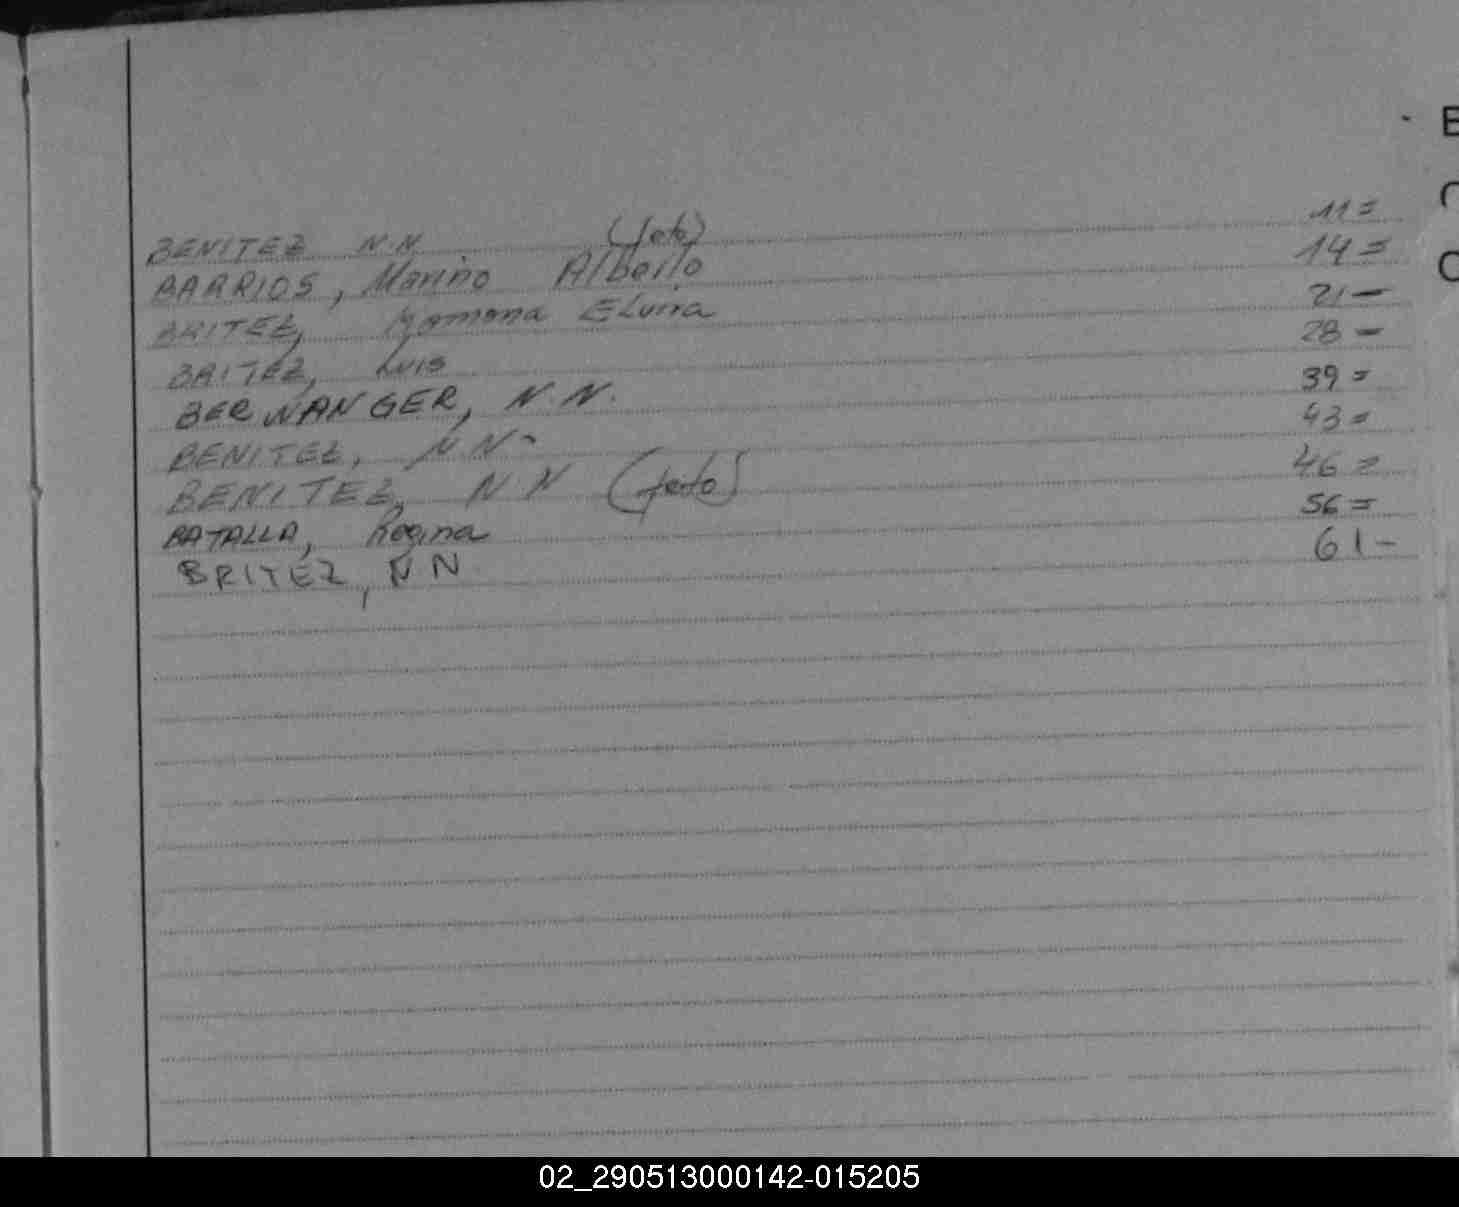 BENITEZ N.N. (feto) 11=
BARRIOS, Marino Alberto 14=
BRITEZ, Ramona Elvira 21-
BRITEZ, Luis 28-
BERWANGER, N.N. 39=
BENITEZ, N N- 43=
BENITEZ, N N (feto) 46=
BATALLA, Regina 56=
BRITEZ, N N 61-
B
C
C
02_290513000142-015205